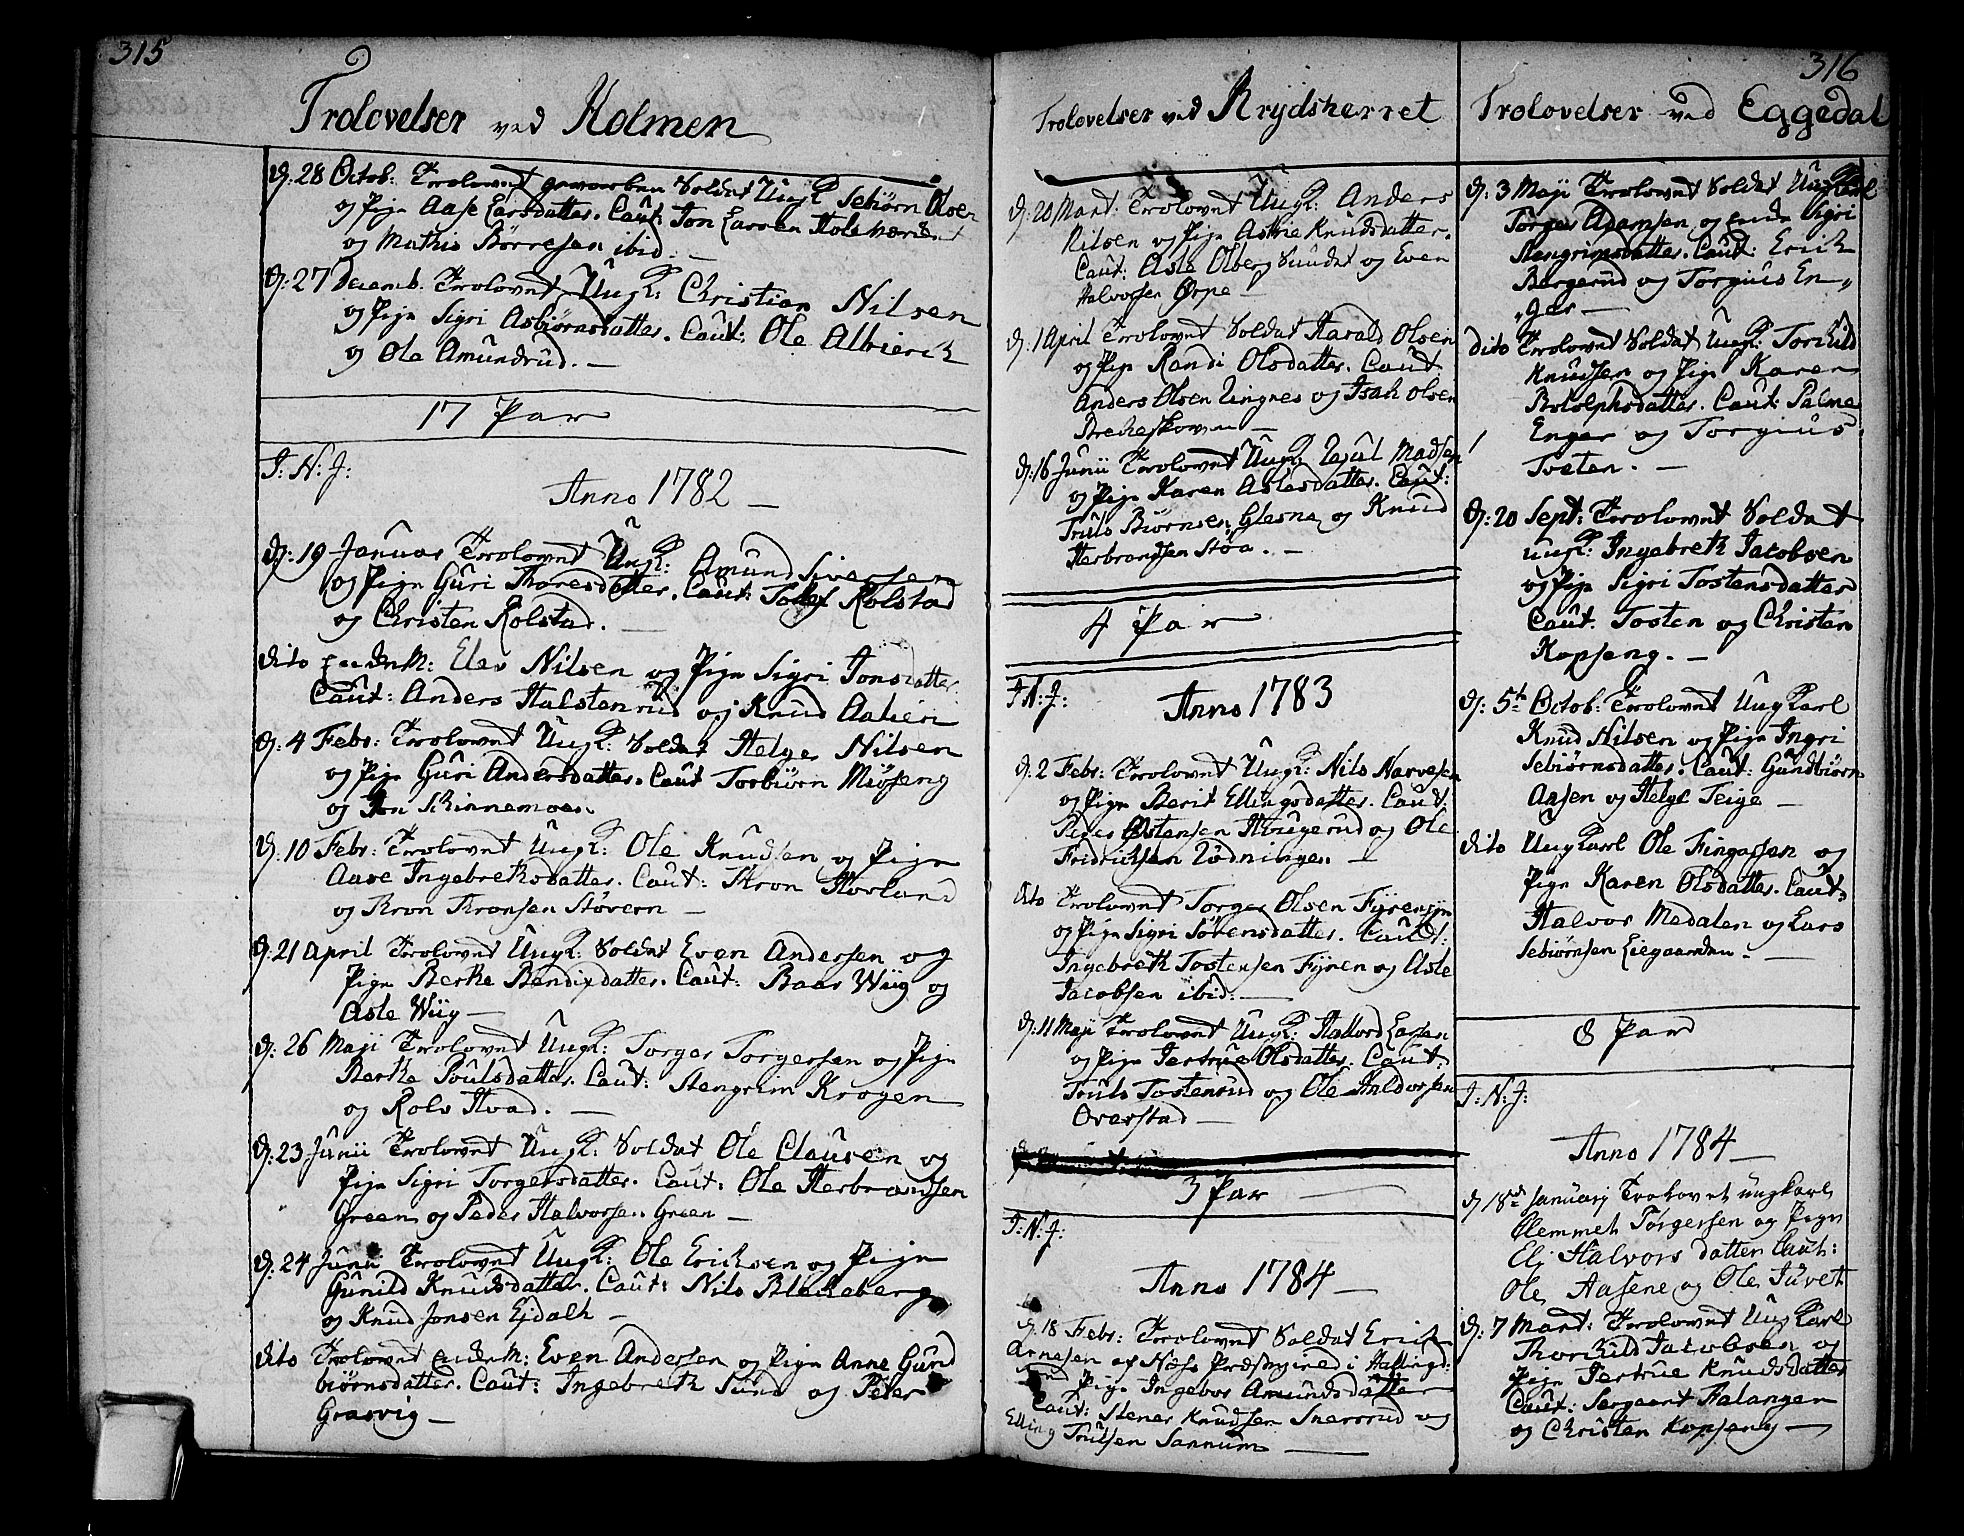 315
Trolovelser ved Holmen
d: 28 Octob: Trolovet gevorben Soldat Ungk: Sebiørn Olsen
og Pige Aase Larsdatter. Caut: Jon Larsen
og Mathis Børresen ibid. —
d: 27 Decemb. Trolovet Ungk: Christian Nilsen
og Pige Sigri Asbiørnsdatter. Caut: Ole Albierch
og Ole Amundrud. —
17 Par
I: N: J:
Anno 1782 —
d: 19 Januar Trolovet Ungk: Amund Siversen
og Pige Guri Thoresdatter. Caut: Rolstad
og Christen Rolstad. —
dito Elev Nilsen og Pige Sigri Jonsdatter
Caut: Anders Halstenrud og Knud Aalien
d: 4 Febr: Trolovet Ungk: Soldat Helge Nilsen
og Pige Guri Andersdatter. Caut Torbiørn Miøseng
og Jon Skinnemoen.
d: 10 Febr: Trolovet Ungk: Ole Knudsen og Pige
Aase Ingebrethsdatter. Caut: Thron Horland
og Thron Thronsen Støvern —
d: 21 April Trolovet Ungk: Soldat Even Andersen og
Pige Berthe Bendixdatter. Caut: Baar Wiig og
Asle Wiig —
d: 26 Maji Trolovet Ungk: Torger Torgersen og Pige
Berthe Poulsdatter. Caut: Stengrim Krogen
og Rolv Hvad. —
d: 23 Junii Trolovet Ungk: Soldat Ole Clausen og
Pige Sigri Torgersdatter. Caut: Ole Herbrandsen
Green og Peder Halvorsen Green —
d: 24 Junii Trolovet Ungk: Ole Ericksen og Pige
Gunild Knudsdatter. Caut: Nils Bleckeberg
og Knud Jonsen Ejdalh —
dito Trolovet Even Andersen og Pige Anne Gund
biørnsdatter. Caut: Ingebreth Sund og Peter
Grasvig —
Trolovelser ved Krydsherret
d: 20 Mart: Trolovet Ungk: Anders
Nilsen og Pige Astrie Knudsdatter.
Caut: Asle Olberg Sundet og Even
Halvorsen Ørpe —
d: 1 April Trolovet Soldat Harald Olsen
og Pige Randi Olsdatter. Caut
Anders Olsen Ringnes og Isak Olsen
Brekeskoven —
d: 16 Junii Trolovet Ungk: Madsen
og Pige Karen Aslesdatter. Caut:
Truls Biørnsen Glesne og Knud
Herbrandsen Støa. —
4 Par
I: N: J:
Anno 1783
d: 2 Febr: Trolovet Ungk: Nils Narvesen
og Pige Berit Ellingsdatter. Caut:
Peder Østensen Hougerud og Ole
Fridrichsen Rødningen. —
dito Trolovet Torger Olsen Fyrenejn
og Pige Sigri Sørensdatter. Caut:
Ingebreth Tostensen Fyren og Asle
Jacobsen ibid: —
d: 11 Maji Trolovet Ungk: Halvord Larsen
og Pige Jertrue Olsdatter. Caut:
Truls Tostensrud og Ole Haldvorsen
Overstad —
3 Par —
I: N: J:
Anno 1784 —
d: 18 Febr: Trolovet Soldat Erich
Arnesen af Næss Præstegield i Hallingd:
Pige Ingebor Amundsdatter
Caut: Stener Knudsen Snersrud og
Elling Trulsen Sannum —
316
Trolovelser ved Eggedal
d: 3 Maji Trolovet Soldat Ungkarl
Torger Adamsen og Enke Sigri
Stengrimsdatter. Caut: Erick
Bergerud og Torgius En„
„ger —
dito Trolovet Soldat Ungk: Torkild
Knudsen og Pige Karen
Botolphsdatter. Caut: Palme
Enger og Torgius
Tveten. —
d: 20 Sept: Trolovet Soldat
ungk: Ingebreth Jacobsen
og Pige Sigri Tostensdatter
Caut. Tosten og Christen
Kopseng. —
d: 5te Octob: Trolovet Ungkarl
Knud Nilsen og Pige Ingri
Sebiørnsdatter. Caut: Gundbiørn
Aasen og Helge Teige —
dito Ungkarl Ole Fingarsen og
Pige Karen Olsdatter. Caut:
Halvor Medalen og Lars
Sebiørnsen Eiegaarden. —
8 Par
I: N: J:
Anno 1784 —
d 18de Januarij Trolovet ungkarl
Clemmet Torgersen og Pige
Eli Halvors datter Caut:
Ole Aasene og Ole Juvet
d: 7 Mart: Trolovet Ungkarl
Thorkild Jacobsen og
Pige Jertrue Knudsdatter
Caut: Sergeant Falangen
og Christen Kopseng —